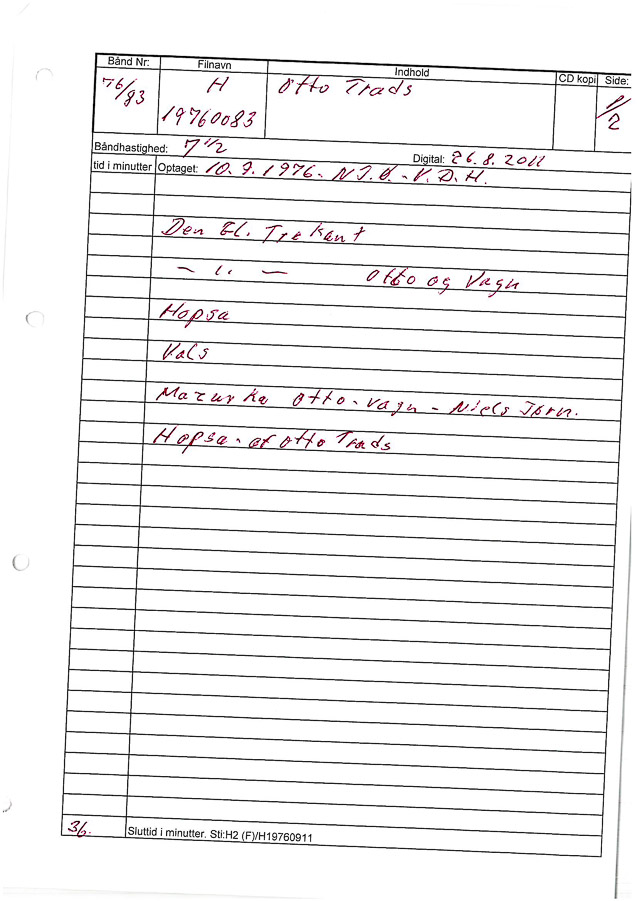 Bånd Nr: Filnavn Indhold CD kopi Side:
76/83 H Otto Trads 1/2
19760083
Båndhastighed: 7 1/2 Digital: 26.8.2011
tid i minutter Optaget: 10.9.1976- NJ.B.-V.D.H.
Den El. Trekant
— ,, — Otto og Vagn
Hopsa
Vals
Mazurka Otto-Vagn-Niels Jørn.
Hopsa-af Otto Trads
36. Sluttid i minutter. Sti:H2 (F)/H19760911